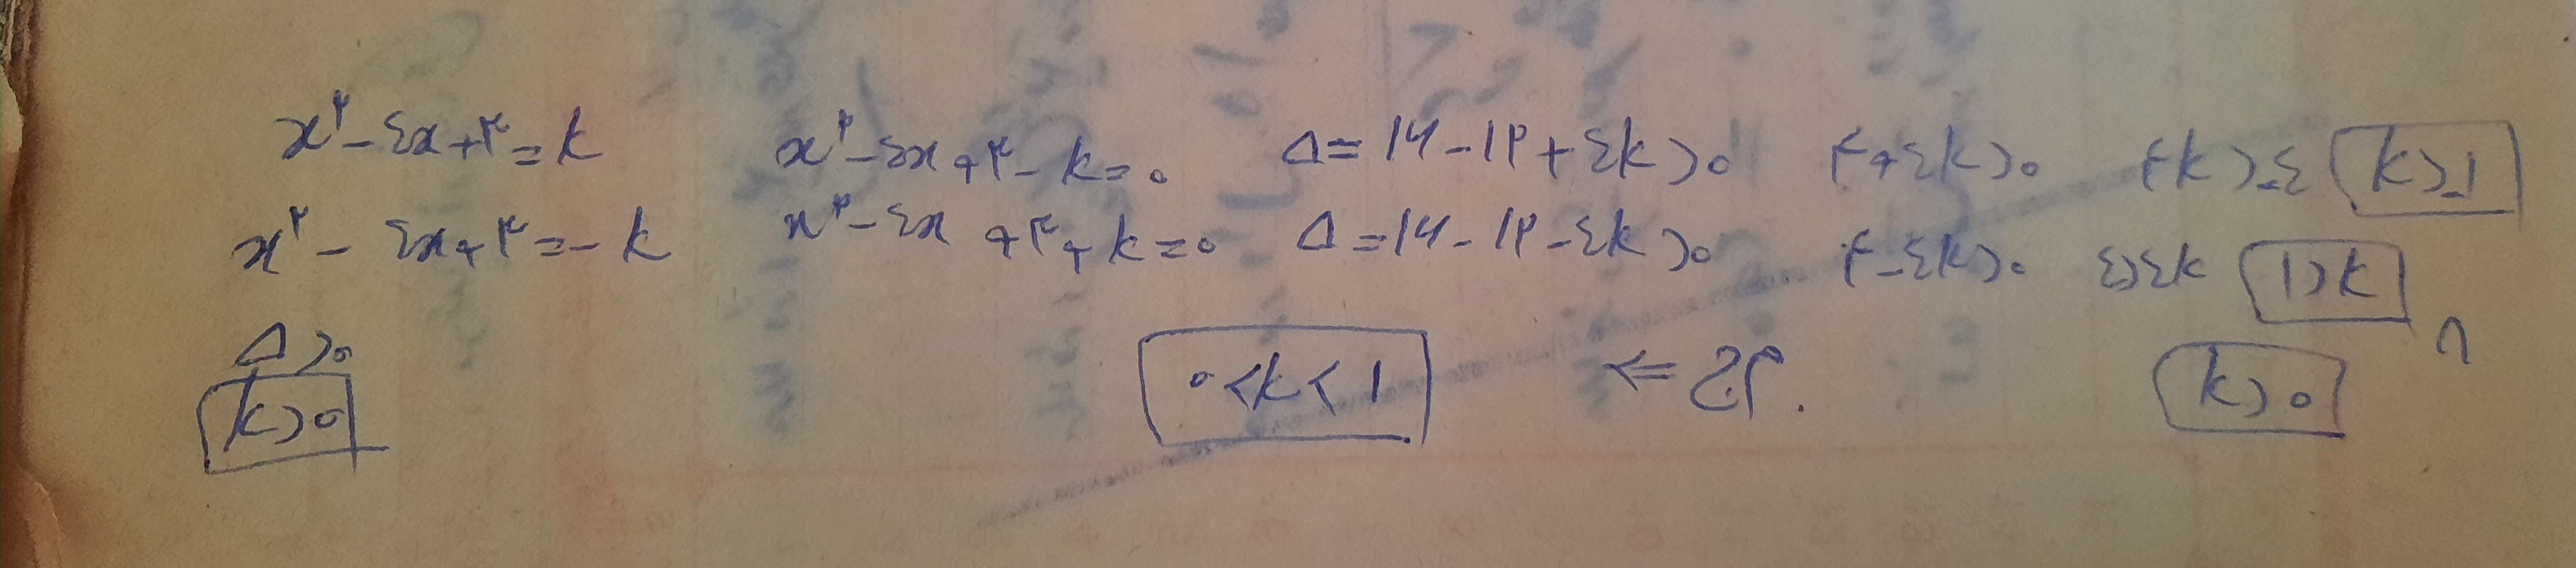 x²-۴x+۳=k x²-۴x+۳-k=۰ Δ=۱۶-۱۲+۴k>۰ ۴+۴k>۰ ۴k>-۴ k>-۱
x²-۴x+۳=-k x²-۴x+۳+k=۰ Δ=۱۶-۱۲-۴k>۰ ۴-۴k>۰ ۴>۴k ۱>k
Δ>۰ ∩
k>۰ ۰<k<۱ ⇐ k>۰